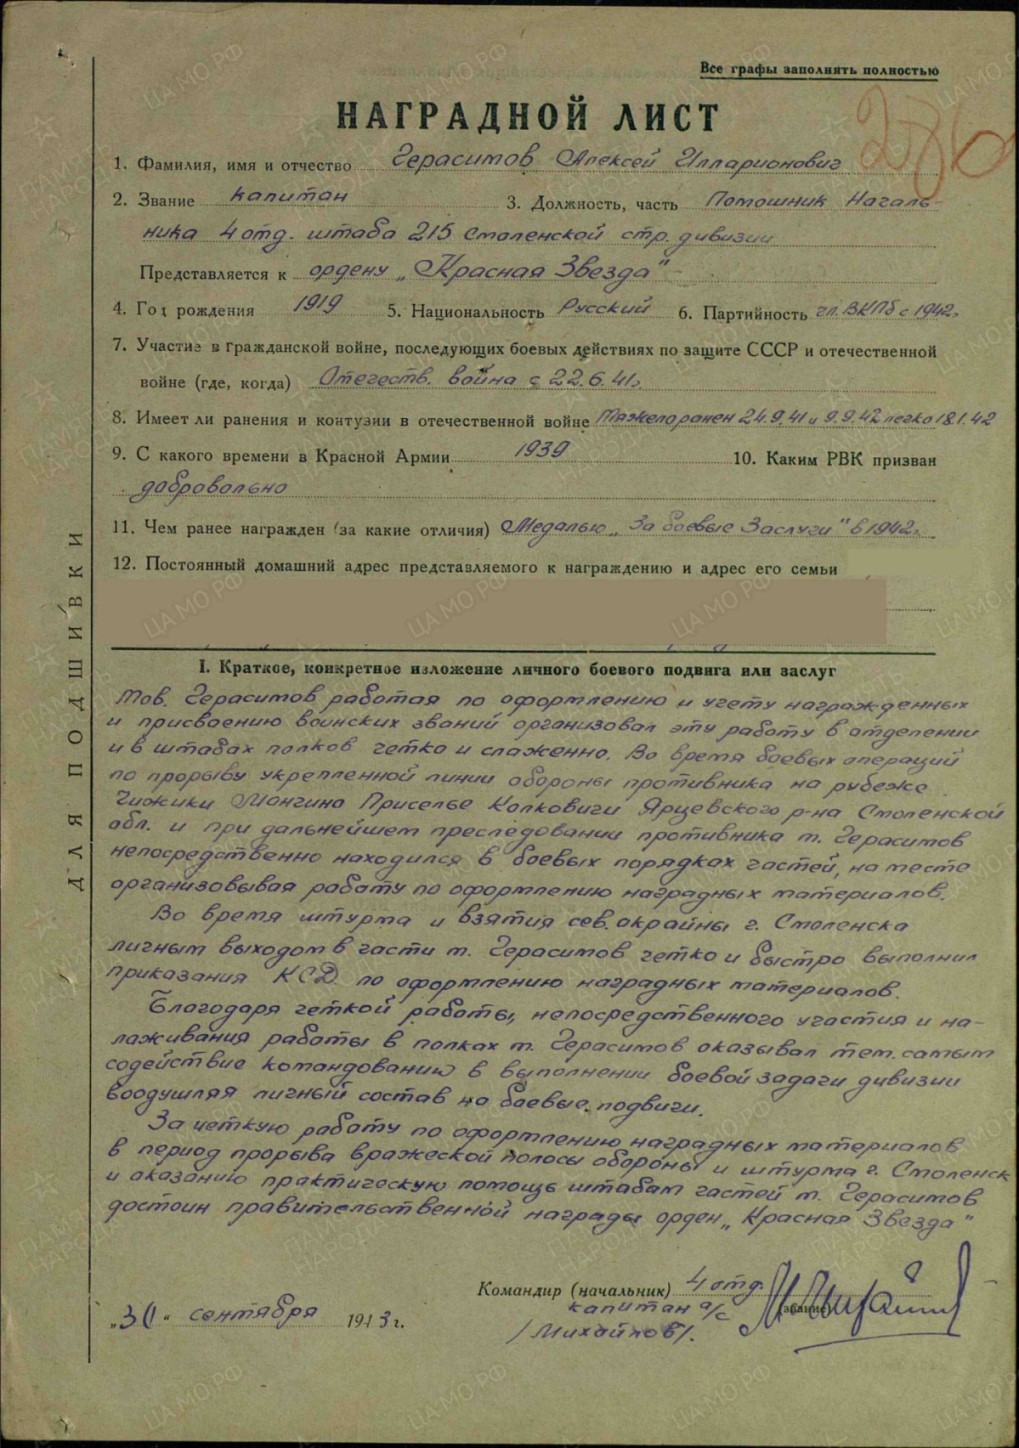 Все графы заполнять полностью
НАГРАДНОЙ ЛИСТ
286
1. Фамилия, имя и отчество Герасимов Алексей Илларионович
2. Звание капитан 3. Должность, часть Помошник Началь-
ника 4 отд. штаба 215 Смоленской стр. дивизии
Представляется к ордену „Красная Звезда"
4. Год рождения 1919 5. Национальность Русский 6. Партийность чл. ВКПб с 1942г.
7. Участие в гражданской войне, последующих боевых действиях по защите СССР и отечественной
войне (где, когда) Отечеств. война с 22.6.41г.
8. Имеет ли ранения и контузии в отечественной войне Тяжело ранен 24.9.41 и 9.9.42 легко 18.1.42
9. С какого времени в Красной Армии 1939 10. Каким РВК призван
добровольно
11. Чем ранее награжден (за какие отличия) Медалью „За боевые Заслуги" в 1942г.
12. Постоянный домашний адрес представляемого к награждению и адрес его семьи
ДЛЯ ПОДШИВКИ
I. Краткое, конкретное изложение личного боевого подвига или заслуг
Тов. Герасимов работая по оформлению и учету награжденных
и присвоению воинских званий организовал эту работу в отделении
и в штабах полков четко и слаженно. Во время боевых операций
по прорыву укрепленной линии обороны противника на рубеже
Чижики Монгино Приселье Колковичи Ярцевского р-на Смоленской
обл. и при дальнейшем преследовании противника т. Герасимов
непосредственно находился в боевых порядках частей, на месте
организовывая работу по оформлению наградных материалов.
Во время штурма и взятия сев. окраины г. Смоленска
личным выходом в части т. Герасимов четко и быстро выполнил
приказания КСД по оформлению наградных материалов.
Благодаря четкой работы, непосредственного участия и на-
лаживания работы в полках т. Герасимов оказывал тем. самым
содействие командованию в выполнении боевой задачи дивизии
воодушляя личный состав на боевые подвиги.
За четкую работу по оформлению наградных материалов
в период прорыва вражеской полосы обороны и штурма г. Смоленск
и оказанию практическую помощь штабам частей т. Герасимов
достоин правительственной награды орден „Красная Звезда"
Командир (начальник) 4 отд.
капитан а/с (звание)
/Михайлов/.
„30" сентября 1943 г.
ЦА МО РФ